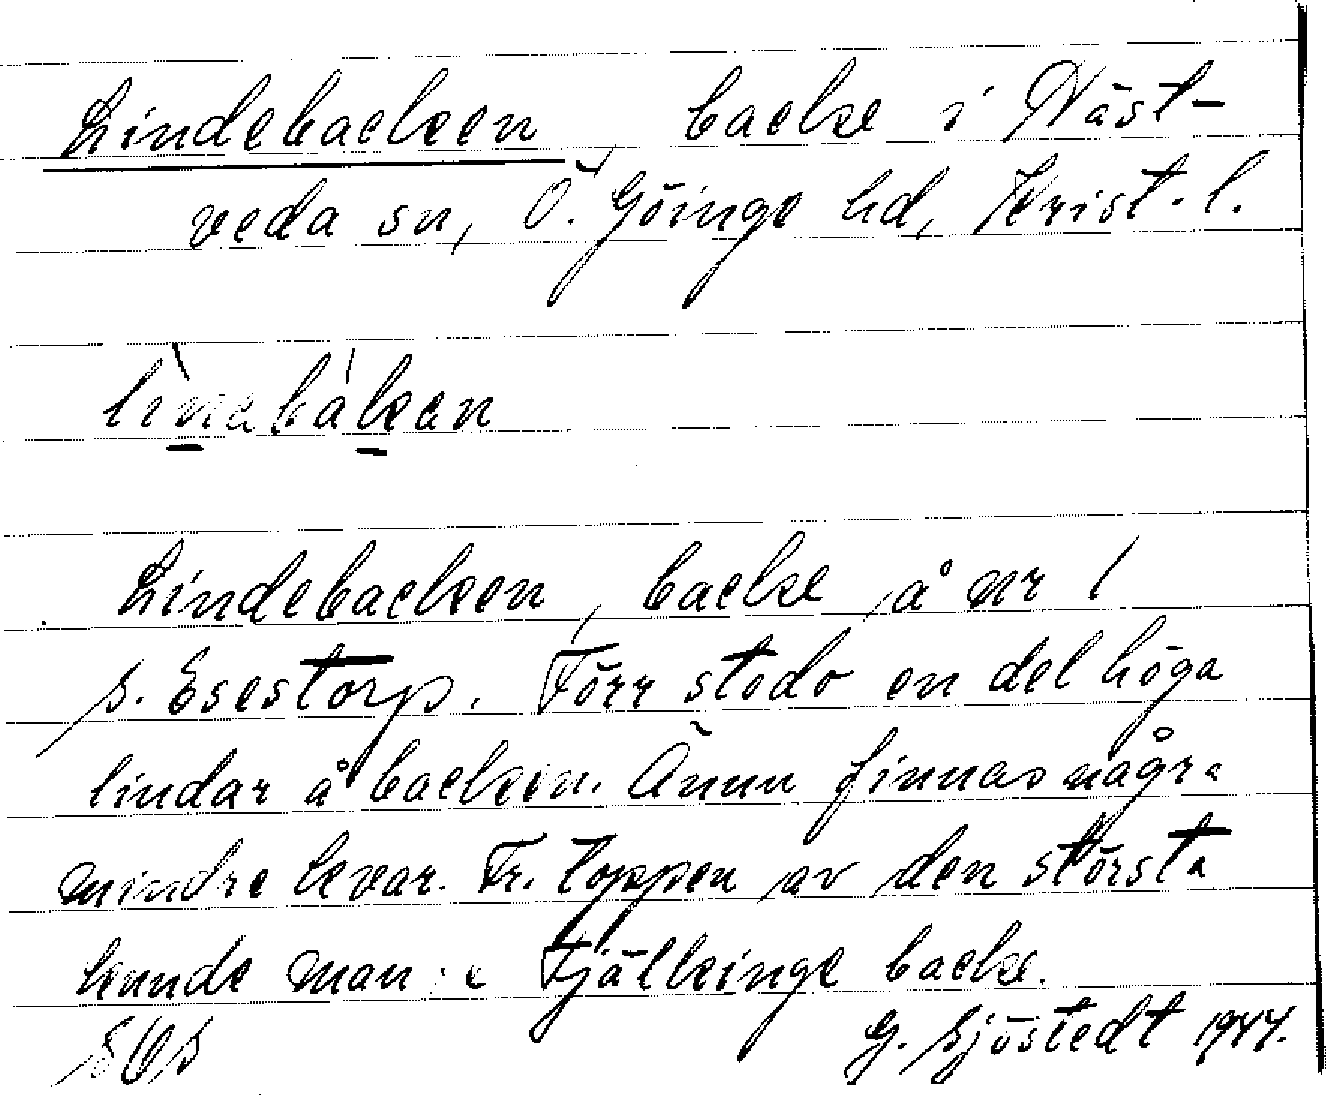 Lindebacken backe i Näst-
veda sn, Ö. Göinge hd, Krist. l.
linebàkan
Lindebacken, backe å nr 1
s. Esestorp. Förr stodo en del höga
lindar å backen. Ännu finnas några
mindre levar. Fr. toppen av den största
kunde man se Fjälkinge backe.
G. Sjöstedt 1947.